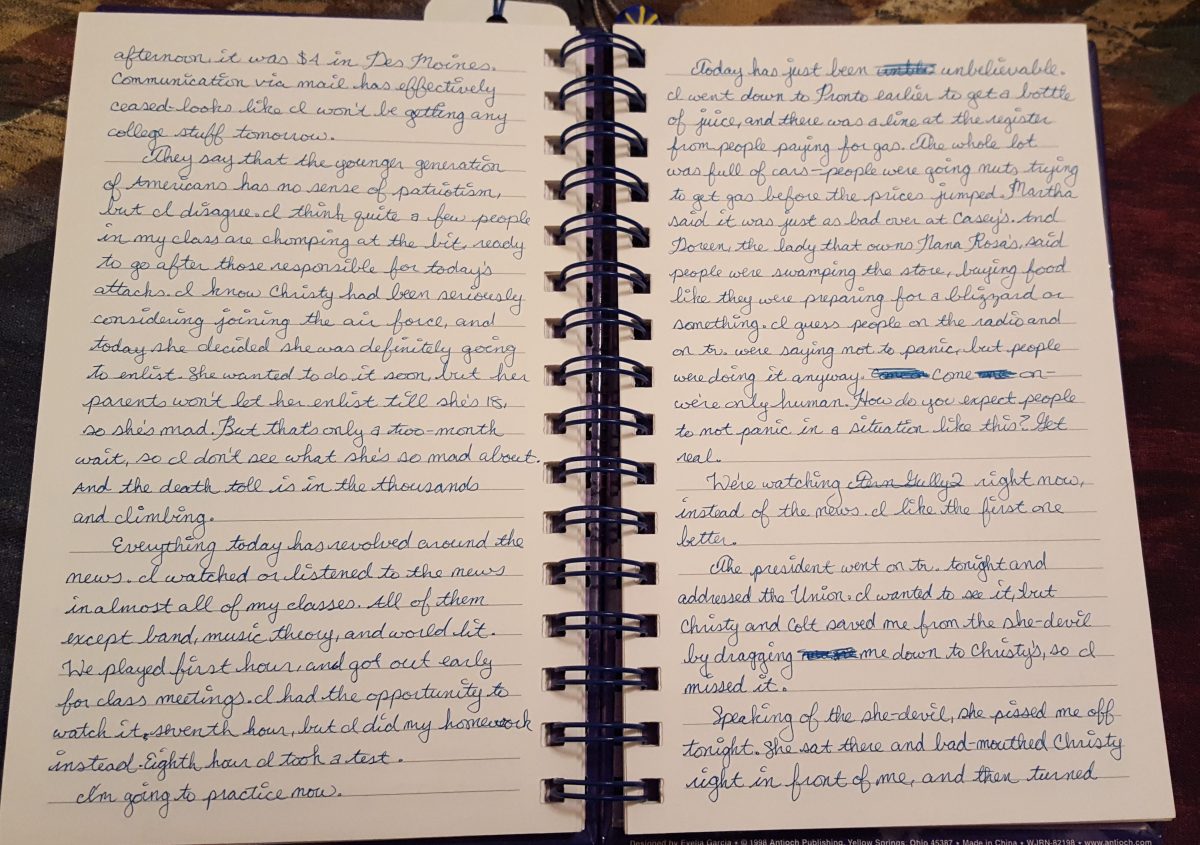 afternoon, it was $4 in Des Moines.
Communication via mail has effectively
ceased-looks like I won't be getting any
college stuff tomorrow.
They say that the younger generation
of Americans has no sense of patriotism,
but I disagree. I think quite a few people
in my class are chomping at the bit, ready
to go after those responsible for today's
attacks. I know Christy had been seriously
considering joining the air force, and
today she decided she was definitely going
to enlist. She wanted to do it soon, but her
parents won't let her enlist till she's 18,
so she's mad. But that's only a two-month
wait, so I don't see what she's so mad about.
And the death toll is in the thousands
and climbing.
Everything today has revolved around the
news. I watched or listened to the news
in almost all of my classes. All of them
except band, music theory, and world lit.
We played first hour, and got out early
for class meetings. I had the opportunity to
watch it seventh hour, but I did my homework
instead. Eighth hour I took a test.
I'm going to practice now.
Today has just been unbelievable.
I went down to Pronto earlier to get a bottle
of juice, and there was a line at the register
from people paying for gas. The whole lot
was full of cars-people were going nuts trying
to get gas before the prices jumped. Martha
said it was just as bad over at Casey's. And
Doreen, the lady that owns Nana Rosa's, said
people were swamping the store, buying food
like they were preparing for a blizzard or
something. I guess people on the radio and
on tv. were saying not to panic, but people
were doing it anyway. Come on-
we're only human. How do you expect people
to not panic in a situation like this? Get
real.
We're watching Fern Gully 2 right now,
instead of the news. I like the first one
better.
The president went on tv. tonight and
addressed the Union. I wanted to see it, but
Christy and Colt saved me from the she-devil
by dragging me down to Christy's, so I
missed it.
Speaking of the she-devil, she pissed me off
tonight. She sat there and bad-mouthed Christy
right in front of me, and then turned
Designed by Exelia Garcia • © 1998 Antioch Publishing, Yellow Springs, Ohio 45387 • Made in China • WJRN-82198 • www.antioch.com